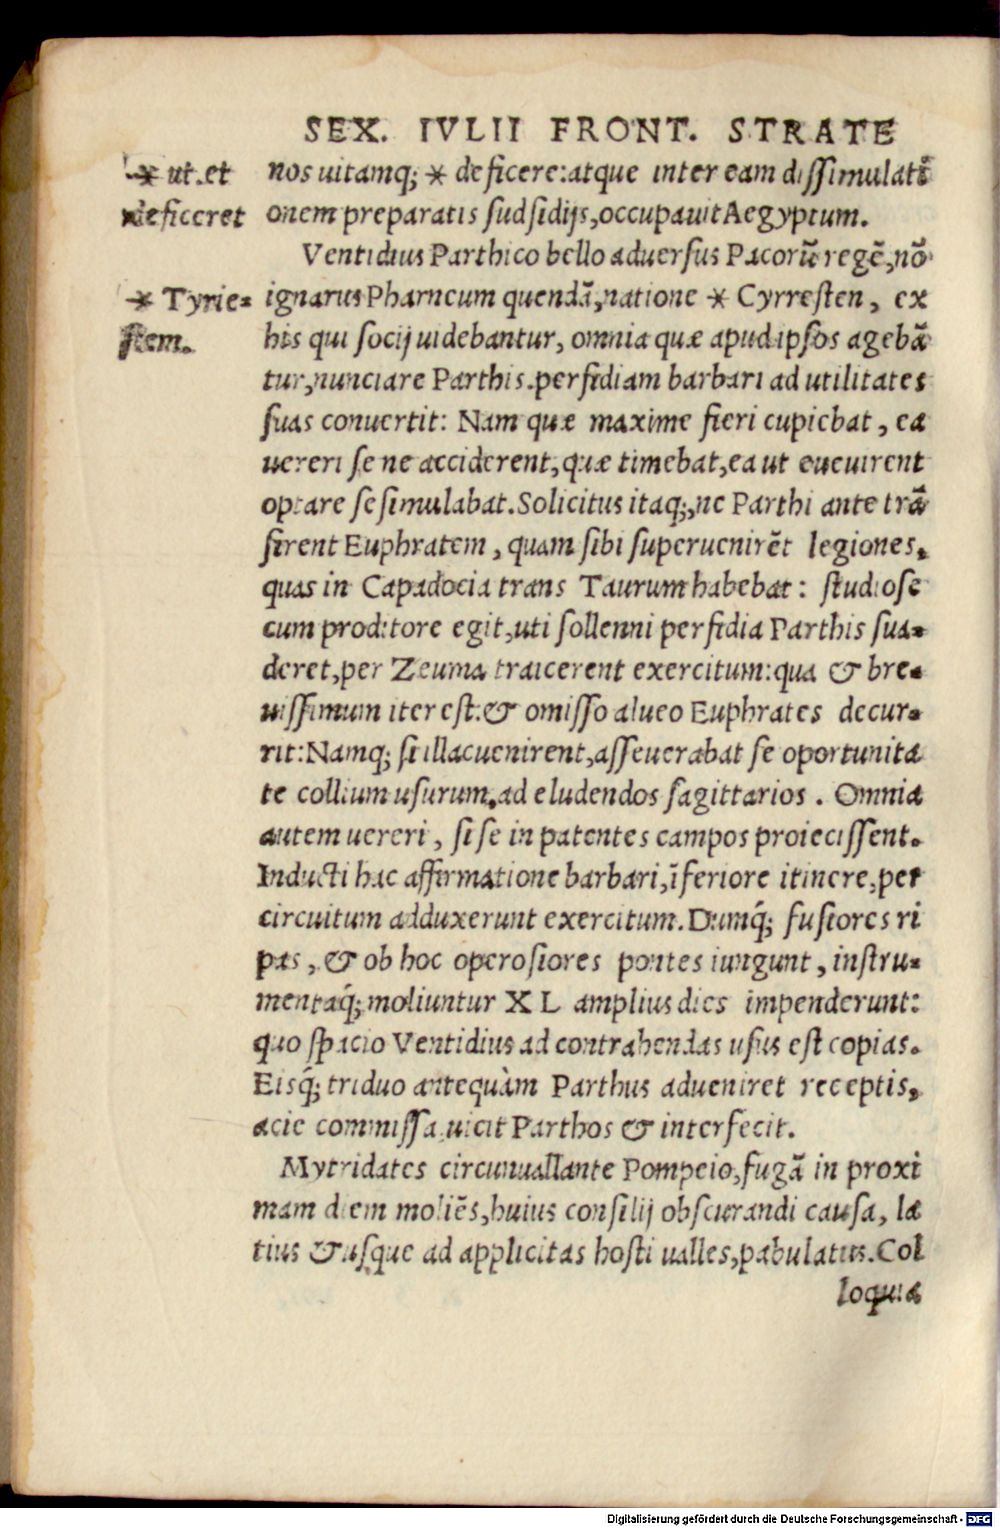 SEX. IVLII FRONT. STRATE
⁎ ut et
deficeret
nos uitamq; ⁎ deficere: atque inter eam dissimulatī
onem preparatis sudsidijs, occupauit Aegyptum.
Ventidius Parthico bello aduersus Pacorū regē, nō
⁎ Tyrie-
stem.
ignarus Pharneum quendā, natione ⁎ Cyrresten, ex
his qui socij uidebantur, omnia quæ apud ipsos agebā
tur, nunciare Parthis. perfidiam barbari ad utilitates
suas conuertit: Nam quæ maxime fieri cupiebat, ea
uereri se ne acciderent, quæ timebat, ea ut eueuirent
optare se simulabat. Solicitus itaq;, ne Parthi ante trā
sirent Euphratem, quam sibi superuenirēt legiones,
quas in Capadocia trans Taurum habebat: studiose
cum proditore egit, uti sollenni perfidia Parthis sua-
deret, per Zeuma traicerent exercitum: qua & bre-
uissimum iter est: & omisso alueo Euphrates decur-
rit: Namq; si illac uenirent, asseuerabat se oportunita
te collium usurum, ad eludendos sagittarios. Omnia
autem uereri, si se in patentes campos proiecissent.
Inducti hac affirmatione barbari, īferiore itinere, per
circuitum adduxerunt exercitum. Dumq́; fusiores ri
pas, & ob hoc operosiores pontes iungunt, instru-
mentaq́; moliuntur XL amplius dies impenderunt:
quo spacio Ventidius ad contrahendas usus est copias.
Eisq́; triduo antequàm Parthus adueniret receptis,
acie commissa uicit Parthos & interfecit.
Mytridates circunuallante Pompeio, fugā in proxi
mam diem moliēs, huius consilij obscurandi causa, la
tius & usque ad applicitas hosti ualles, pabulatus. Col
loquia
Digitalisierung gefördert durch die Deutsche Forschungsgemeinschaft - DFG